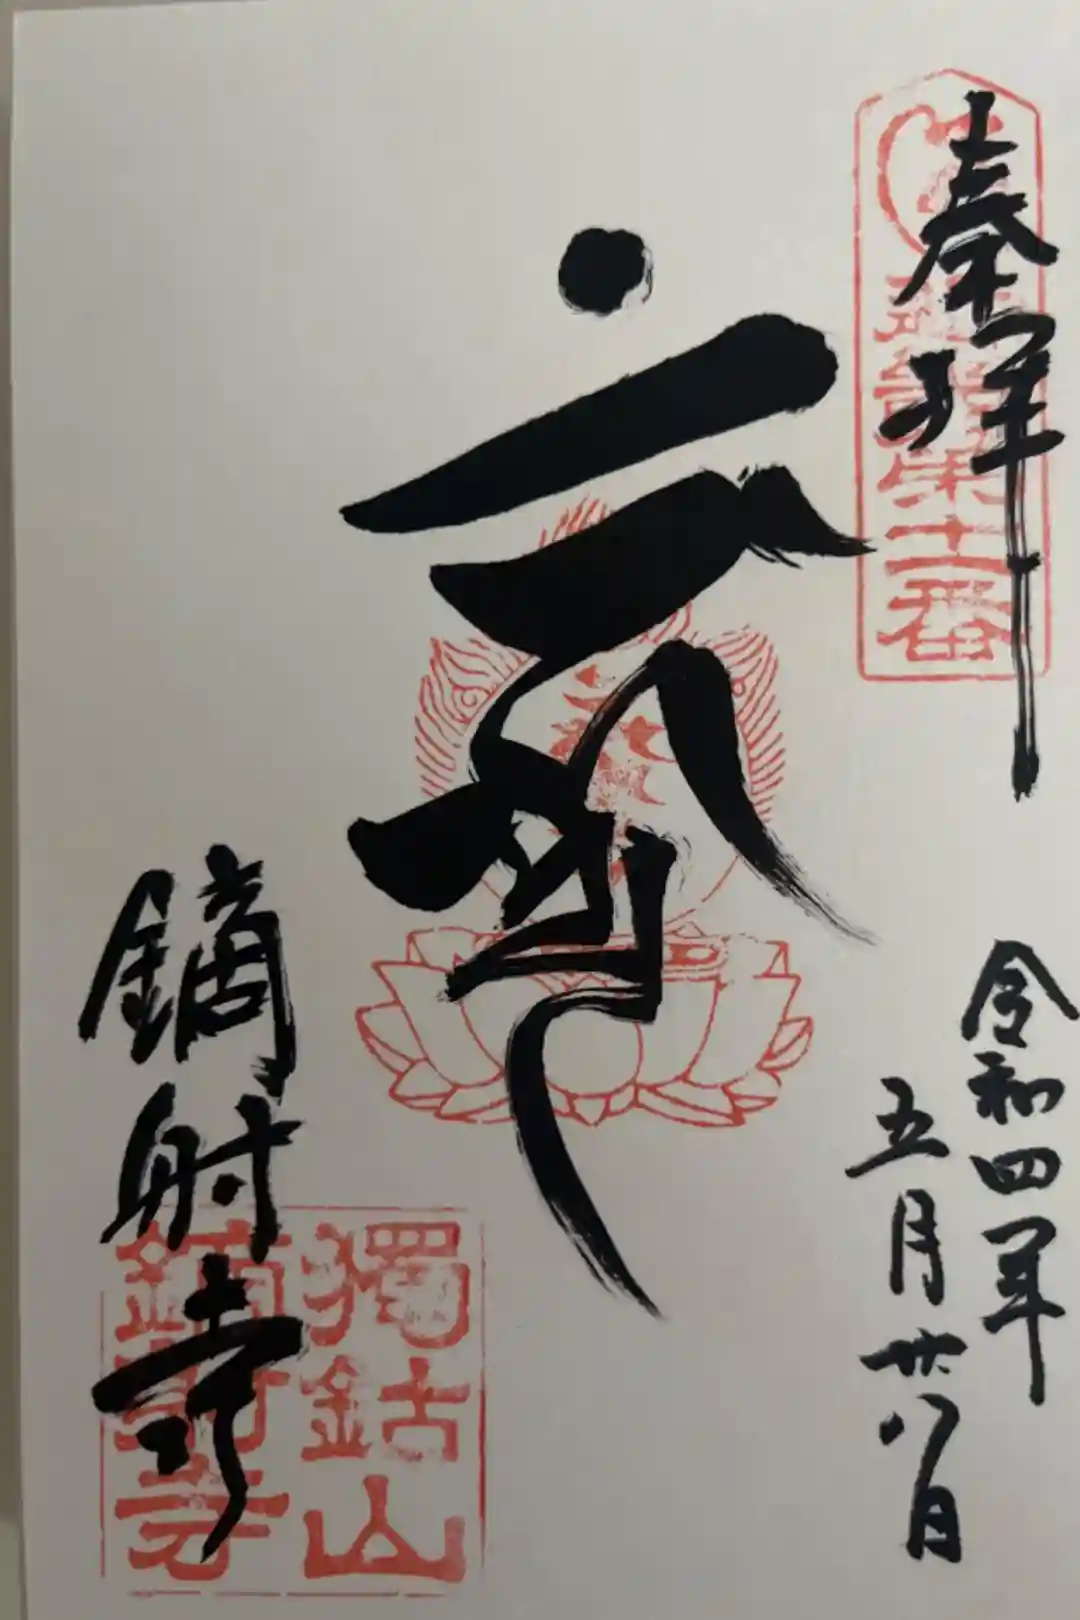 奉拝
第十二番
令和四年
五月廿八日
鏑射寺
獨鈷山
鏑射寺